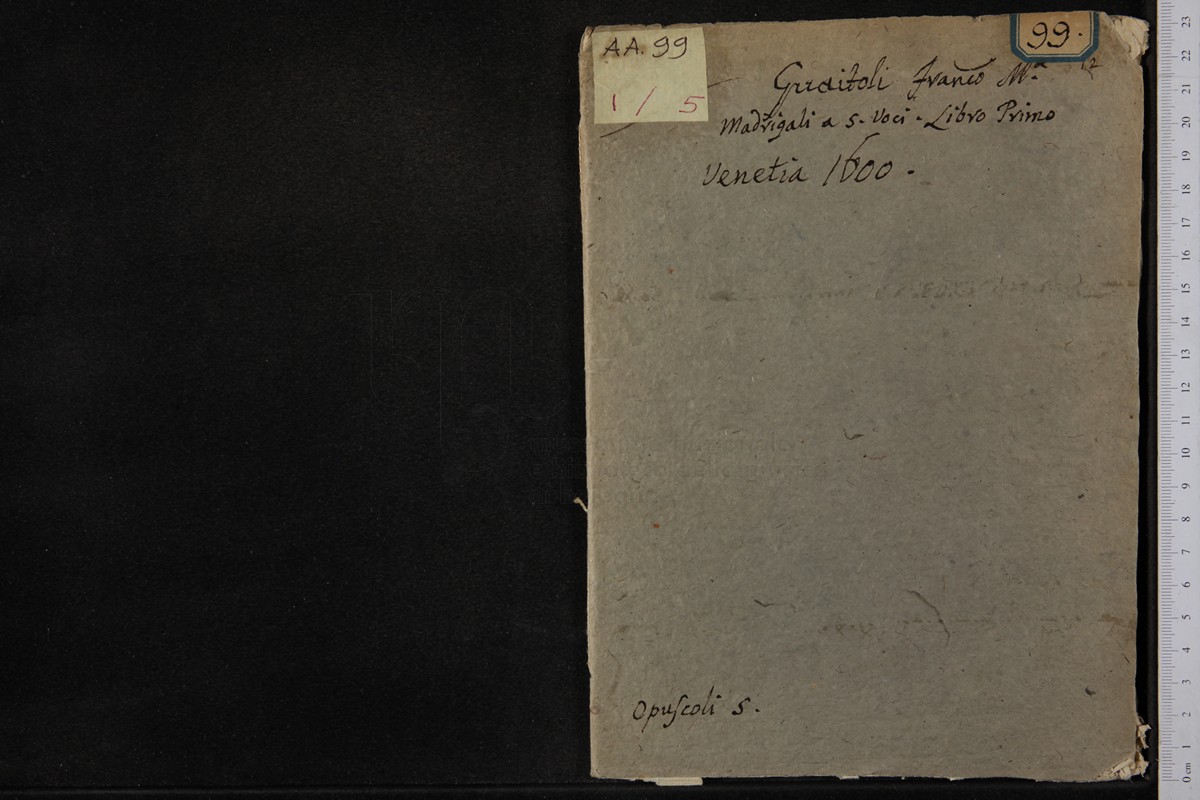 AA. 99
1 / 5
99.
Guaitoli Franco M.a
Madrigali a 5. Voci. Libro Primo
Venetia 1600.
Opuſcoli 5.
23
22
21
20
19
18
17
16
15
14
13
12
11
10
9
8
7
6
5
4
3
2
1
0 cm